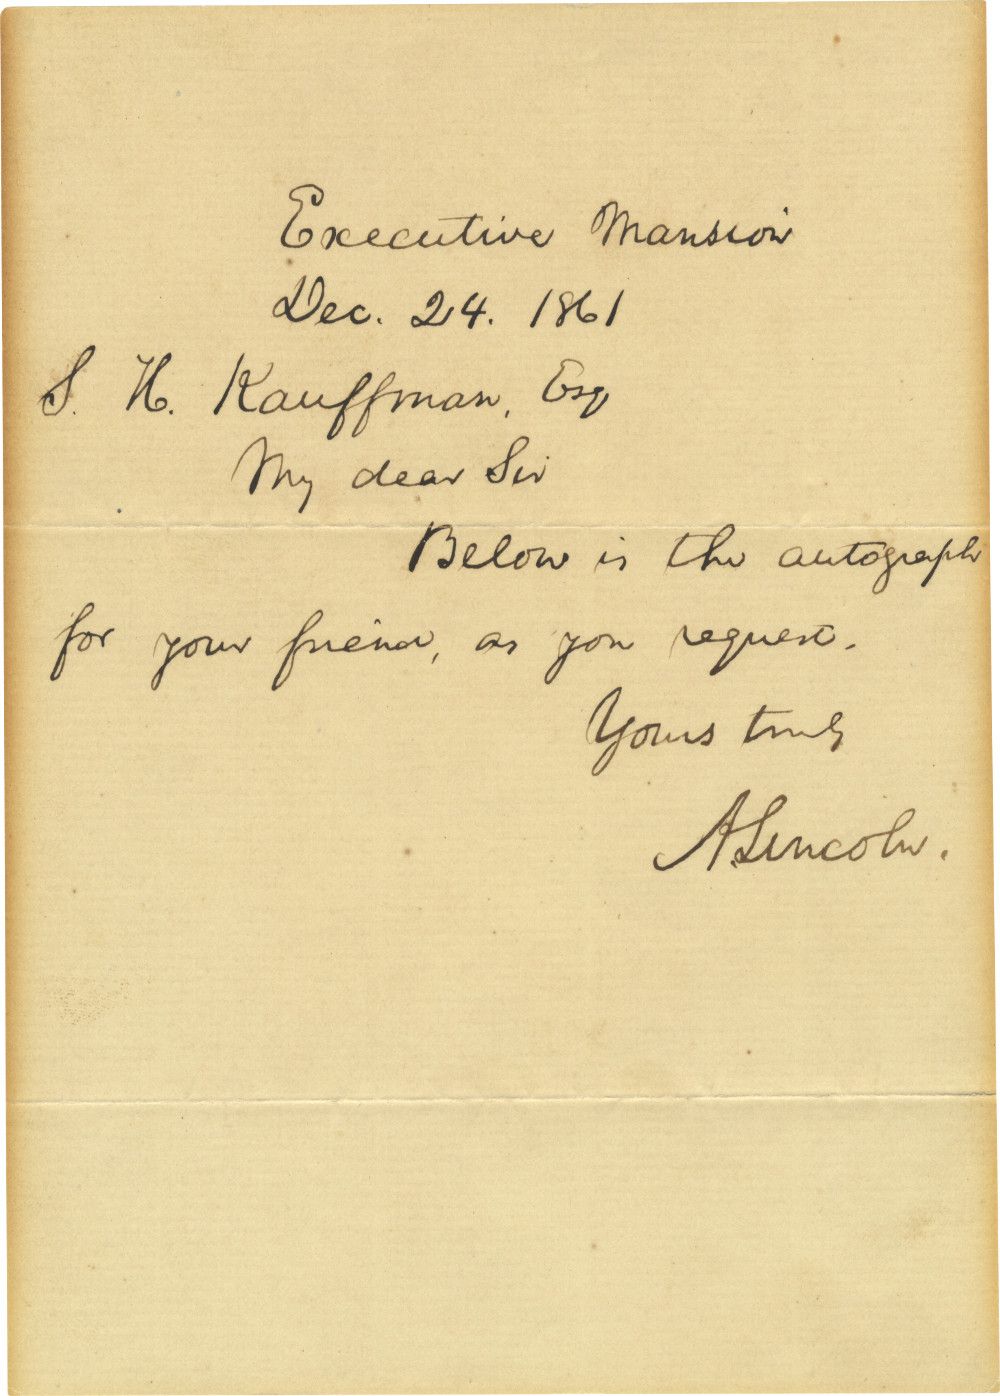 Executive Mansion
Dec. 24. 1861
S. H. Kauffman, Esq
My dear Sir
Below is the autograph
for your friend, as you request.
Yours truly
A. Lincoln.